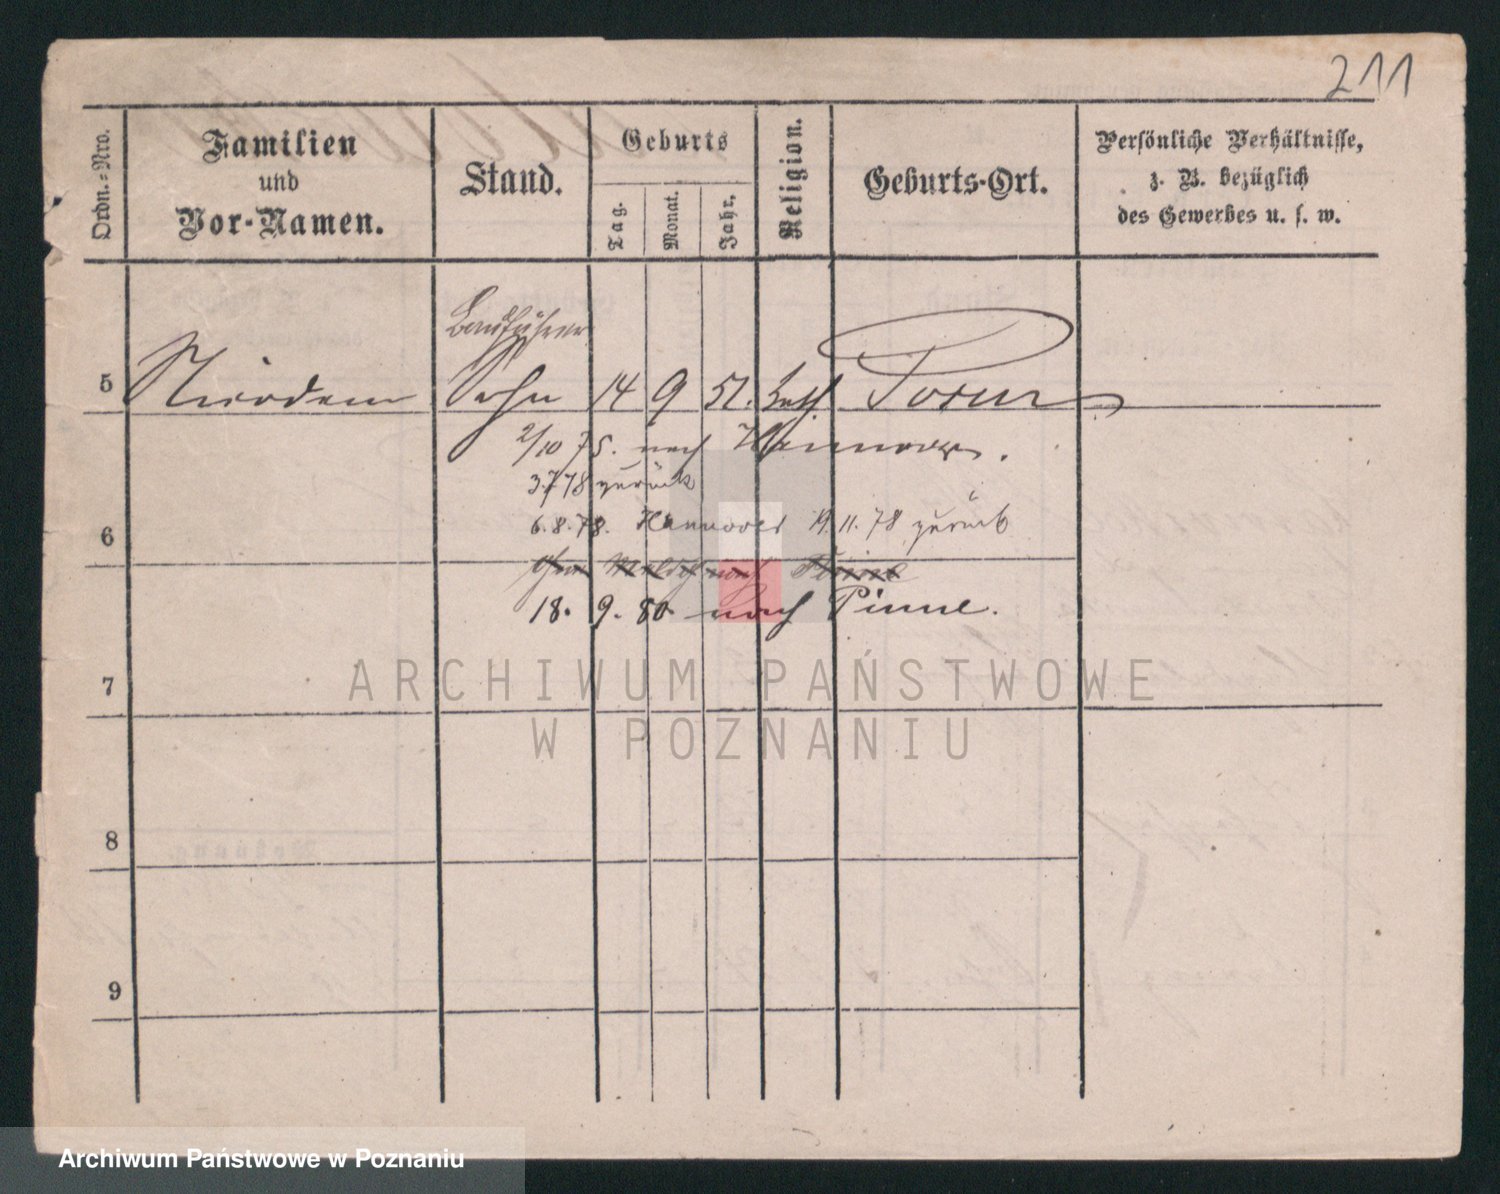 211
Ordn.-Nro.
Familien
und
Vor-Namen.
Stand.
Geburts
Tag.
Monat.
Jahr.
Religion.
Geburts-Ort.
Persönliche Verhältnisse,
z. B. bezüglich
des Gewerbes u. s. w.
Bauführer
5 Sohn 14 9 51. kath Posen
2/10 75. nach Hannover.
3.7 78 zurück
6
6.8.78. Hannover 19.11.78 zurück
18. 9. 80 nach Pinne.
7
8
9
ARCHIWUM PAŃSTWOWE
W POZNANIU
Archiwum Państwowe w Poznaniu